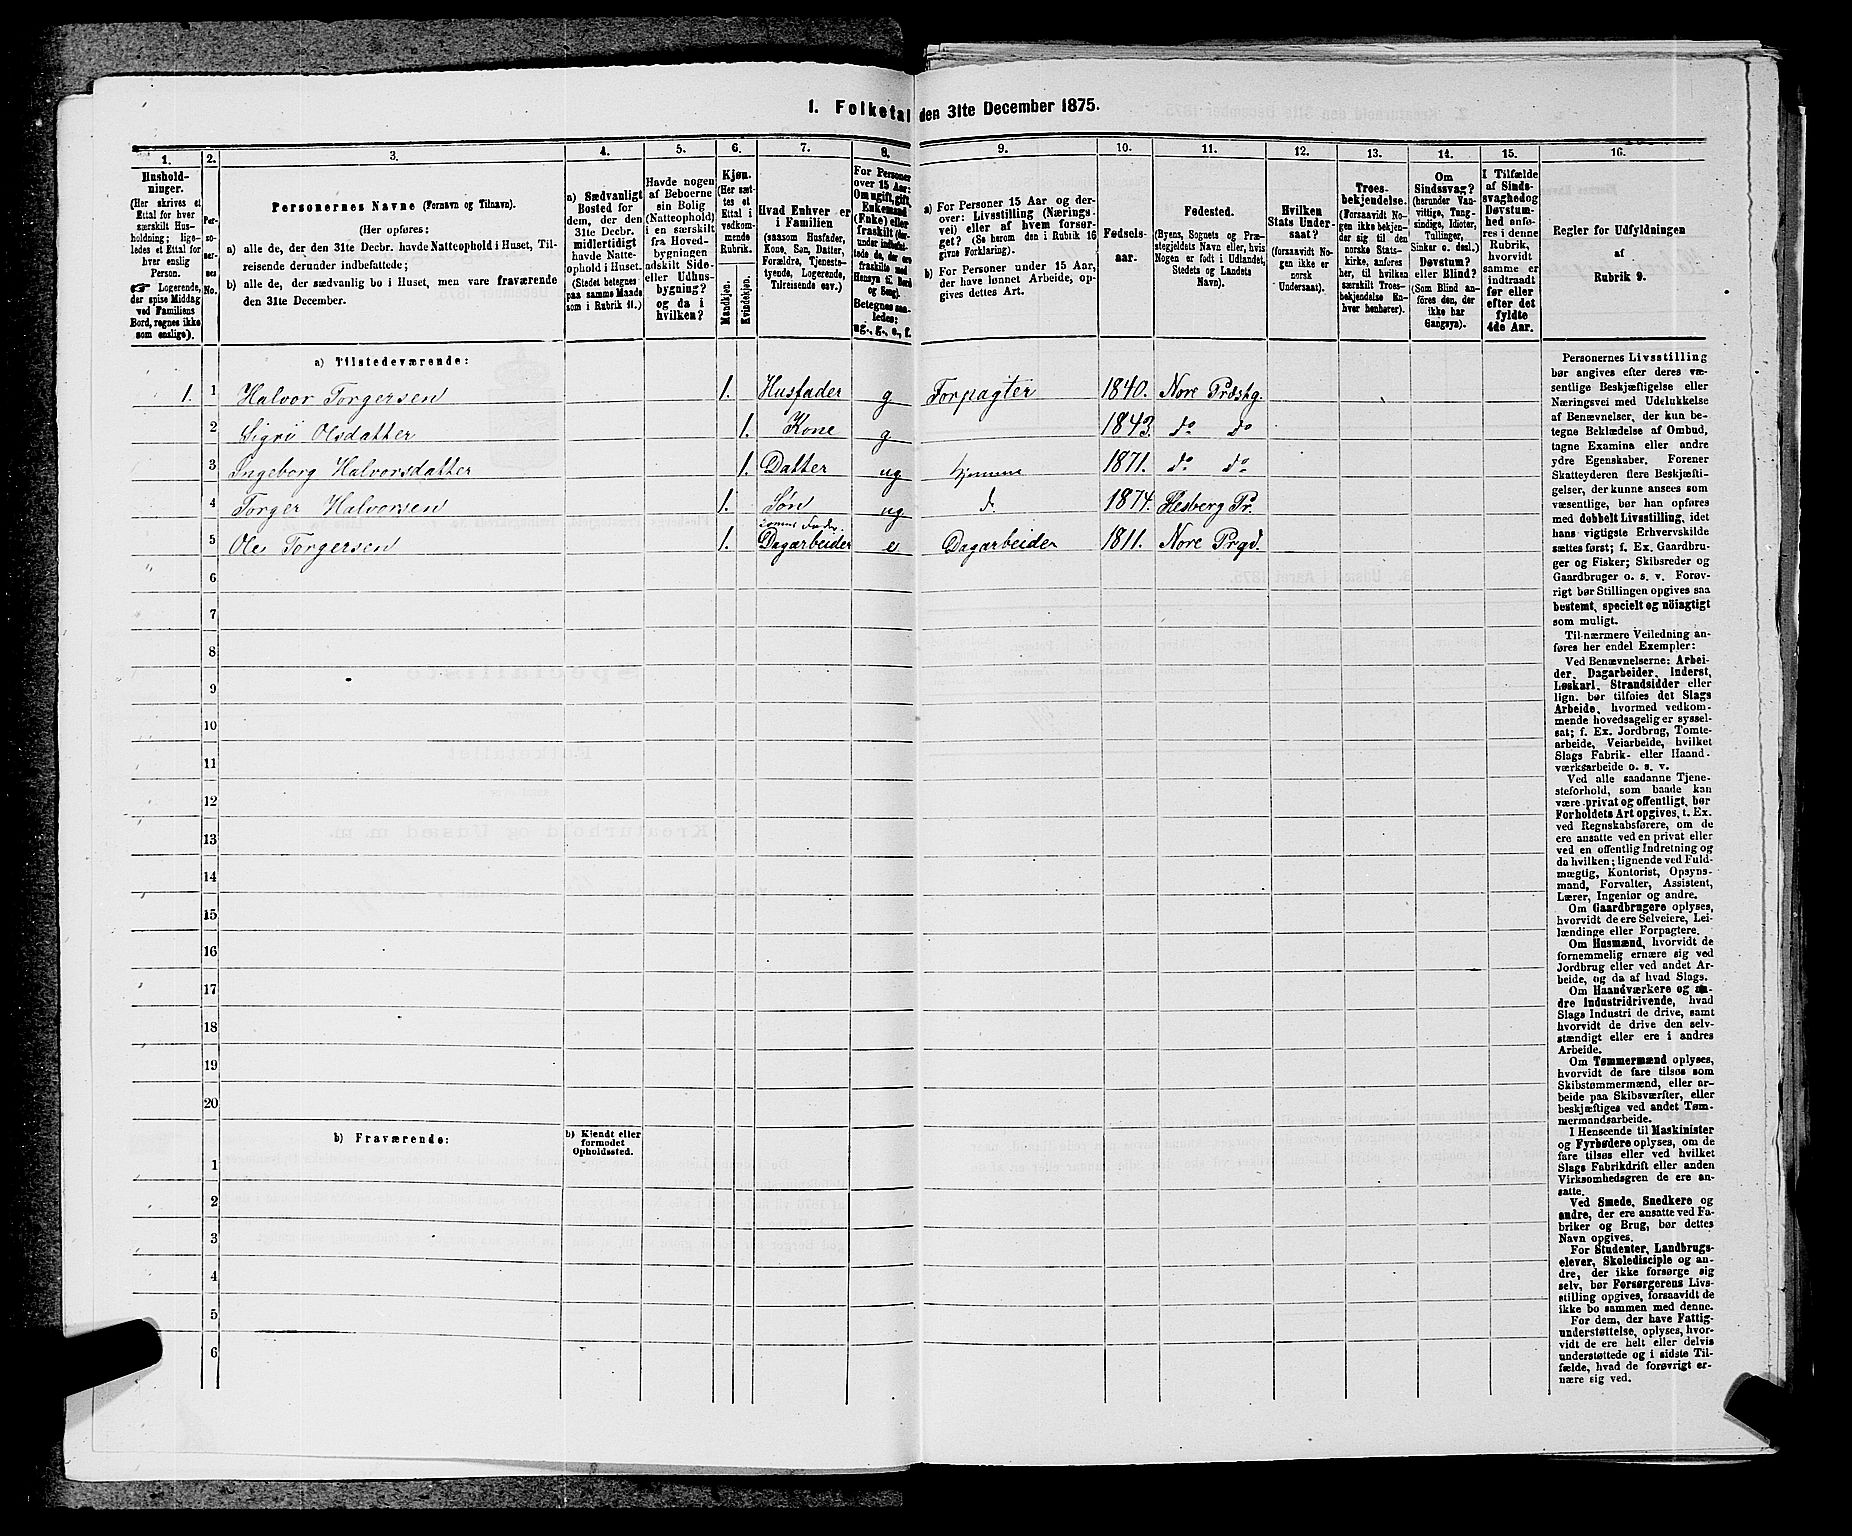 1. Folketal den 31te December 1875.
1. 2. 3. 4. 5. 6. 7. 8. 9. 10. 11. 12. 13. 14. 15. 16.
Husholdninger.
(Her skrives et
Ettal for hver
særskilt Husholdning;
ligeledes et Ettal for
hver enslig
Person.
Logerende,
der spise Middag
ved Familiens
Bord, regnes ikke
som enslige).
Personernes No.
Personernes Navne (Fornavn og Tilnavn).
(Her opføres:
a) alle de, der den 31te Decbr. havde Natteophold i Huset, Tilreisende derunder indbefattede;
b) alle de, der sædvanlig bo i Huset, men vare fraværende
den 31te December.
a) Sædvanligt
Bosted for
dem, der den
31te Decbr.
midlertidigt
havde Natteophold i Huset.
(Stedet betegnes
paa samme Maade
som i Rubrik 11.)
Havde nogen
af Beboerne
sin Bolig
(Natteophold)
i en særskilt
fra Hovedbygningen
adskilt Sideeller Udhusbygning?
og da i
hvilken?
Kjøn.
(Her sættes et
Ettal i
vedkommende
Rubrik.
Mandkjøn.
Kvindekjøn.
Hvad Enhver er
i Familien
(saasom Husfader,
Kone, Søn, Datter,
Forældre, Tjenestetyende, Logerende,
Tilreisende osv.)
For Personer
over 15 Aar:
Om ugift, gift,
Enkemand
(Enke) eller
fraskilt
Betegnes saaledes:
ug., g., e., f.
a) For Personer 15 Aar og derover: Livsstilling (Næringsvei) eller af hvem forsørget? (Se herom den i Rubrik 16
givne Forklaring).
b) For Personer under 15 Aar,
der have lønnet Arbeide, opgives dettes Art.
Fødselsaar.
Fødested.
(Byens, Sognets og Præstegjeldets Navn eller, hvis
Nogen er født i Udlandet,
Stedets og Landets
Navn).
Hvilken
Stats Undersaat?
(forsaavidt Nogen ikke er
norsk
Undersaat).
Troesbekjendelse.
(Forsaavidt Nogen ikke bekjender sig til den
norske Statskirke, anføres
her, til hvilken
særskilt Troesbekjendelse Enhver henhører).
Om
Sindssvag?
(herunder Vanvittige, Tungsindige, Idioter,
Tullinger,
Sinker o. desl.)
Døvstum?
eller Blind?
(Som Blind anføres den, der
ikke har
Gangsyn).
I Tilfælde
af Sindssvaghed og
Døvstumhed anføres i denne
Rubrik,
hvorvidt
samme er
indtraadt
før eller
efter det
fyldte
4de Aar.
Regler for Udfyldningen
af
Rubrik 9.
a) Tilstedeværende:
1. 1 Halvor Torgersen 1. Husfader g Forpagter 1840. Nore Prdstg.
2 Sigri Olsdatter 1. Kone g 1843. do do
3 Ingeborg Halvorsdatter 1. Datter ug hjemme 1871. do do
4 Torger Halvorsen 1. Søn ug d. 1874. Flesberg Pr.
Fader.
5 Ole Torgersen 1. Dagarbeider e Dagarbeider 1811. Nore Prgd.
6
7
8
9
10
11
12
13
14
15
16
17
18
19
20
b) Fraværende:
b) Kjendt eller
formodet
Opholdssted.
1
2
3
4
5
6
Personernes Livsstilling
bør angives efter deres væsentlige Beskjæftigelse eller
Næringsvei med Udelukkelse
af Benævnelser, der kun betegne Beklædelse af Ombud,
tagne Examina eller andre
ydre Egenskaber. Forener
Skatteyderen flere Beskjæftigelser, der kunne ansees som
væsentlige, bør han opføres
med dobbelt Livsstilling, idet
hans vigtigste Erhvervskilde
sættes først; f. Ex. Gaardbruger og Fisker; Skibsreder og
Gaardbruger o. s. v. Forøvrigt bør Stillingen opgives saa
bestemt, specielt og nöiagtigt
som muligt.
Til nærmere Veiledning anføres her endel Exempler:
Ved Benævnelserne: Arbeider, Dagarbeider, Inderst,
Løskarl, Strandsidder eller
lign. bør tilføies det Slags
Arbeide, hvormed vedkommende hovedsagelig er sysselsat; f. Ex. Jordbrug, Tomtearbeide, Veiarbeide, hvilket
Slags Fabrik- eller Haandværksarbeide o. s. v.
Ved alle saadanne Tjenesteforhold, som baade kan
være privat og offentligt, bør
Forholdets Art opgives, t. Ex.
ved Regnskabsførere, om de
ere ansatte ved en privat eller
ved en offentlig Indretning og
da hvilken; lignende ved Fuldmægtig, Kontorist, Opsynsmand, Forvalter, Assistent,
Lærer, Ingeniør og andre.
Om Gaardbrugere oplyses,
hvorvidt de ere Selveiere, Leilændinge eller Forpagtere.
Om Husmænd, hvorvidt de
fornemmelig ernære sig ved
Jordbrug eller ved andet Arbeide, og da af hvad Slags.
Om Haandværkere og andre Industridrivende, hvad
Slags Industri de drive, samt
hvorvidt de drive den selvstændigt eller ere i andres
Arbeide.
Om Tømmermænd oplyses,
hvorvidt de fare tilsøs som
Skibstømmermænd, eller arbeide paa Skibsværfter, eller
beskjæftiges ved andet Tømmermandsarbeide.
I Henseende til Maskinister
og Fyrbødere oplyses, om de
fare tilsøs eller ved hvilket
Slags Fabrikdrift eller anden
Virksomhedsgren de ere ansatte.
Ved Smede, Snedkere og
andre, der ere ansatte ved Fabriker og Brug, bør dettes
Navn opgives.
For Studenter, Landbrugselever, Skoledisciple og andre, der ikke forsørge sig
selv, bør Forsørgerens Livsstilling opgives, forsaavidt de
ikke bo sammen med denne.
For dem, der have Fattigunderstøttelse, oplyses, hvorvidt de ere helt eller delvis
understøttede og i sidste Tilfælde, hvad de forøvrigt ernære sig ved.